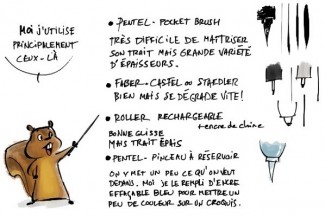 MOI J'UTILISE
PRINCIPALEMENT
CEUX-LÀ
• PENTEL - POCKET BRUSH
TRÈS DIFFICILE DE MAÎTRISER
SON TRAIT MAIS GRANDE VARIÉTÉ
D'ÉPAISSEURS.
• FABER-CASTEL OU STAEDLER
BIEN MAIS SE DÉGRADE VITE!
• ROLLER RECHARGEABLE
+encre de chine
BONNE GLISSE
MAIS TRAIT ÉPAIS
• PENTEL - PINCEAU À RÉSERVOIR
ON Y MET UN PEU CE QU'ON VEUT
DEDANS. MOI JE LE REMPLI D'ENCRE
EFFAÇABLE BLEU POUR METTRE UN
PEU DE COULEUR SUR UN CROQUIS.